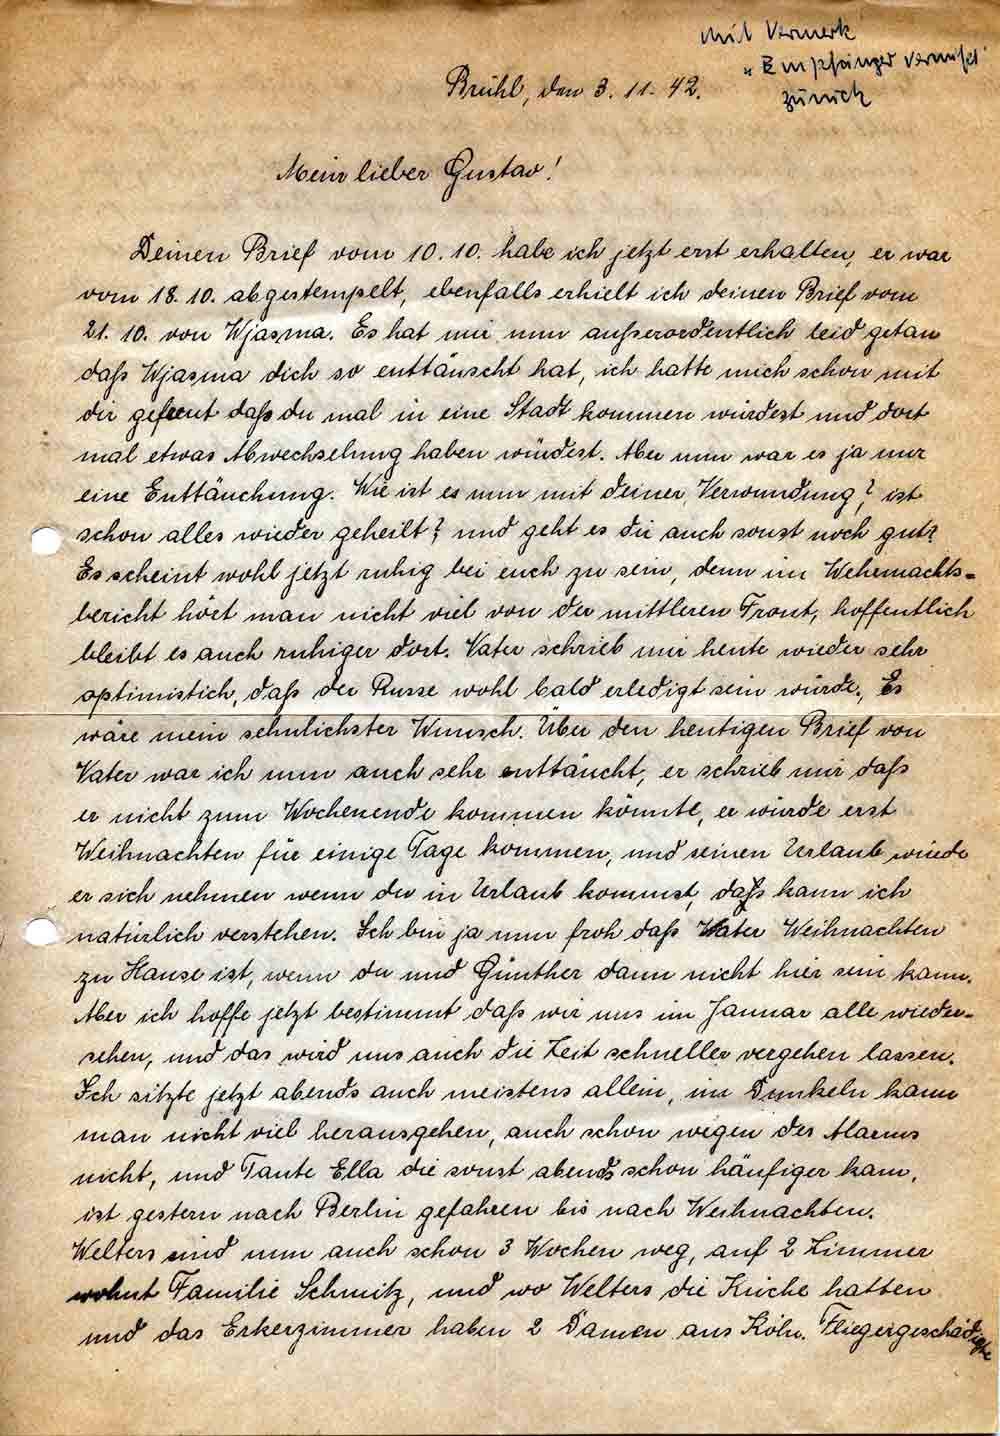 Mit Vermerk
"Empfänger vermißt"
zurück
Brühl, den 3. 11. 42.
Mein lieber Gustav!
Deinen Brief vom 10. 10. habe ich jetzt erst erhalten, er war
vom 18. 10. abgestempelt, ebenfalls erhielt ich deinen Brief vom
21. 10. von Wjasma. Es hat mir nun außerordentlich leid getan
daß Wjasma dich so enttäuscht hat, ich hatte mich schon mit
dir gefreut daß du mal in eine Stadt kommen würdest und dort
mal etwas Abwechselung haben würdest. Aber nun war es ja nur
eine Enttäuchung. Wie ist es nun mit deiner Verwundung? ist
schon alles wieder geheilt? und geht es dir auch sonst noch gut?
Es scheint wohl jetzt ruhig bei euch zu sein, denn im Wehrmachts=
bericht hört man nicht viel von der mittleren Front, hoffentlich
bleibt es auch ruhiger dort. Vater schrieb mir heute wieder sehr
optimistich, daß der Russe wohl bald erledigt sein würde. Es
wäre mein sehnlichster Wunsch. Über den heutigen Brief von
Vater war ich nun auch sehr enttäucht, er schrieb mir daß
er nicht zum Wochenende kommen könnte, er würde erst
Weihnachten für einige Tage kommen, und seinen Urlaub würde
er sich nehmen wenn du in Urlaub kommst, daß kann ich
natürlich verstehen. Ich bin ja nun froh daß Vater Weihnachten
zu Hause ist, wenn du und Günther dann nicht hier sein kann.
Aber ich hoffe jetzt bestimmt daß wir uns im Januar alle wieder=
sehen, und das wird uns auch die Zeit schneller vergehen lassen.
Ich sitzte jetzt abends auch meistens allein, im Dunkeln kann
man nicht viel herausgehen, auch schon wegen des Alarms
nicht, und Tante Ella die sonst abends schon häufiger kam,
ist gestern nach Berlin gefahren bis nach Weihnachten.
Welters sind nun auch schon 3 Wochen weg, auf 2 Zimmer
wohnt Familie Schmitz, und wo Welters die Küche hatten
und das Erkerzimmer haben 2 Damen aus Köln. Fliegergeschädigte